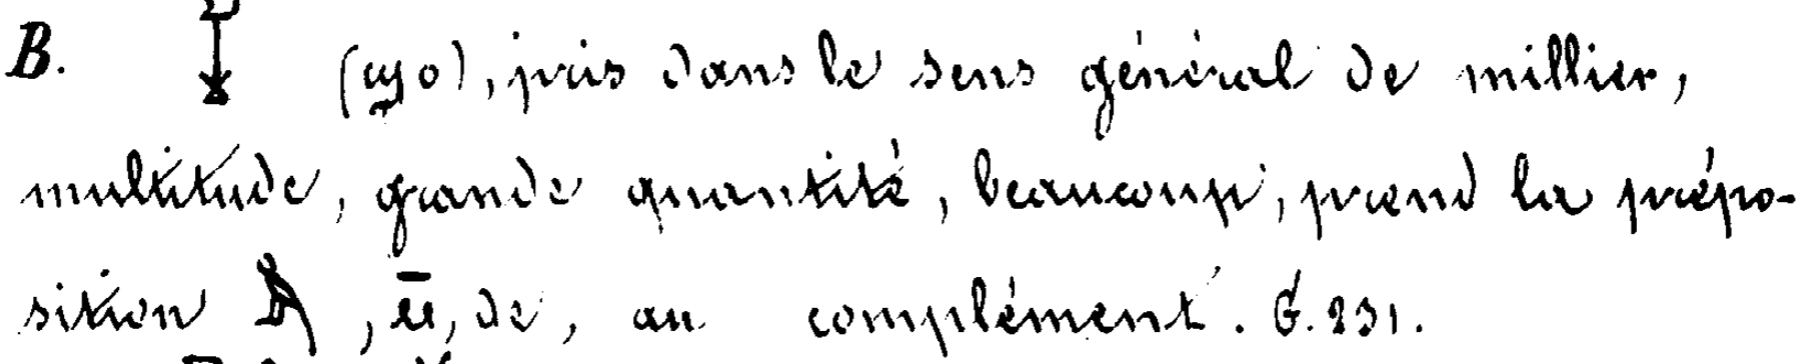 B. 𓆼 (ϣο), pris dans le sens général de millier,
multitude, grande quantité, beaucoup, prend la prépo-
sition 𓅓, ⲙ̄, de, au complément. G. 231.